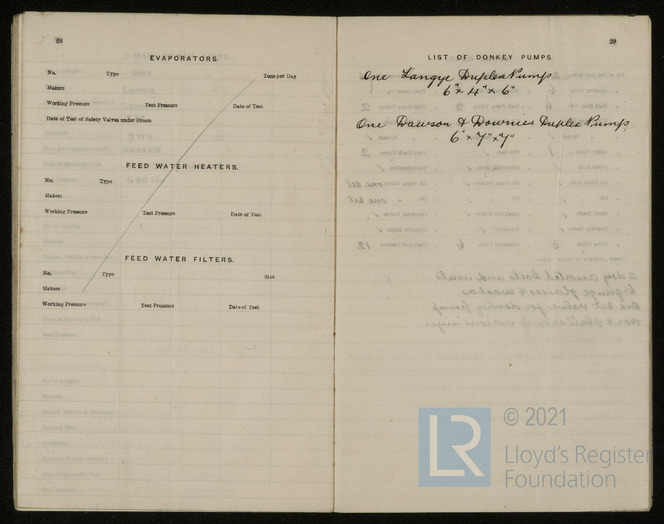 28
EVAPORATORS.
No. Type Tons per Day
Makers
Working Pressure Test Pressure Date of Test
Date of Test of Safety Valves under Steam
FEED WATER HEATERS.
No. Type
Makers
Working Pressure Test Pressure Date of Test
FEED WATER FILTERS.
No. Type Size
Makers
Working Pressure Test Pressure Date of Test
29
LIST OF DONKEY PUMPS.
One Langye Duplex Pump
6" x 4" x 6"
One Dawson & Downies Duplex Pump
6" x 7" x 7"
LR
© 2021
Lloyd's Register
Foundation